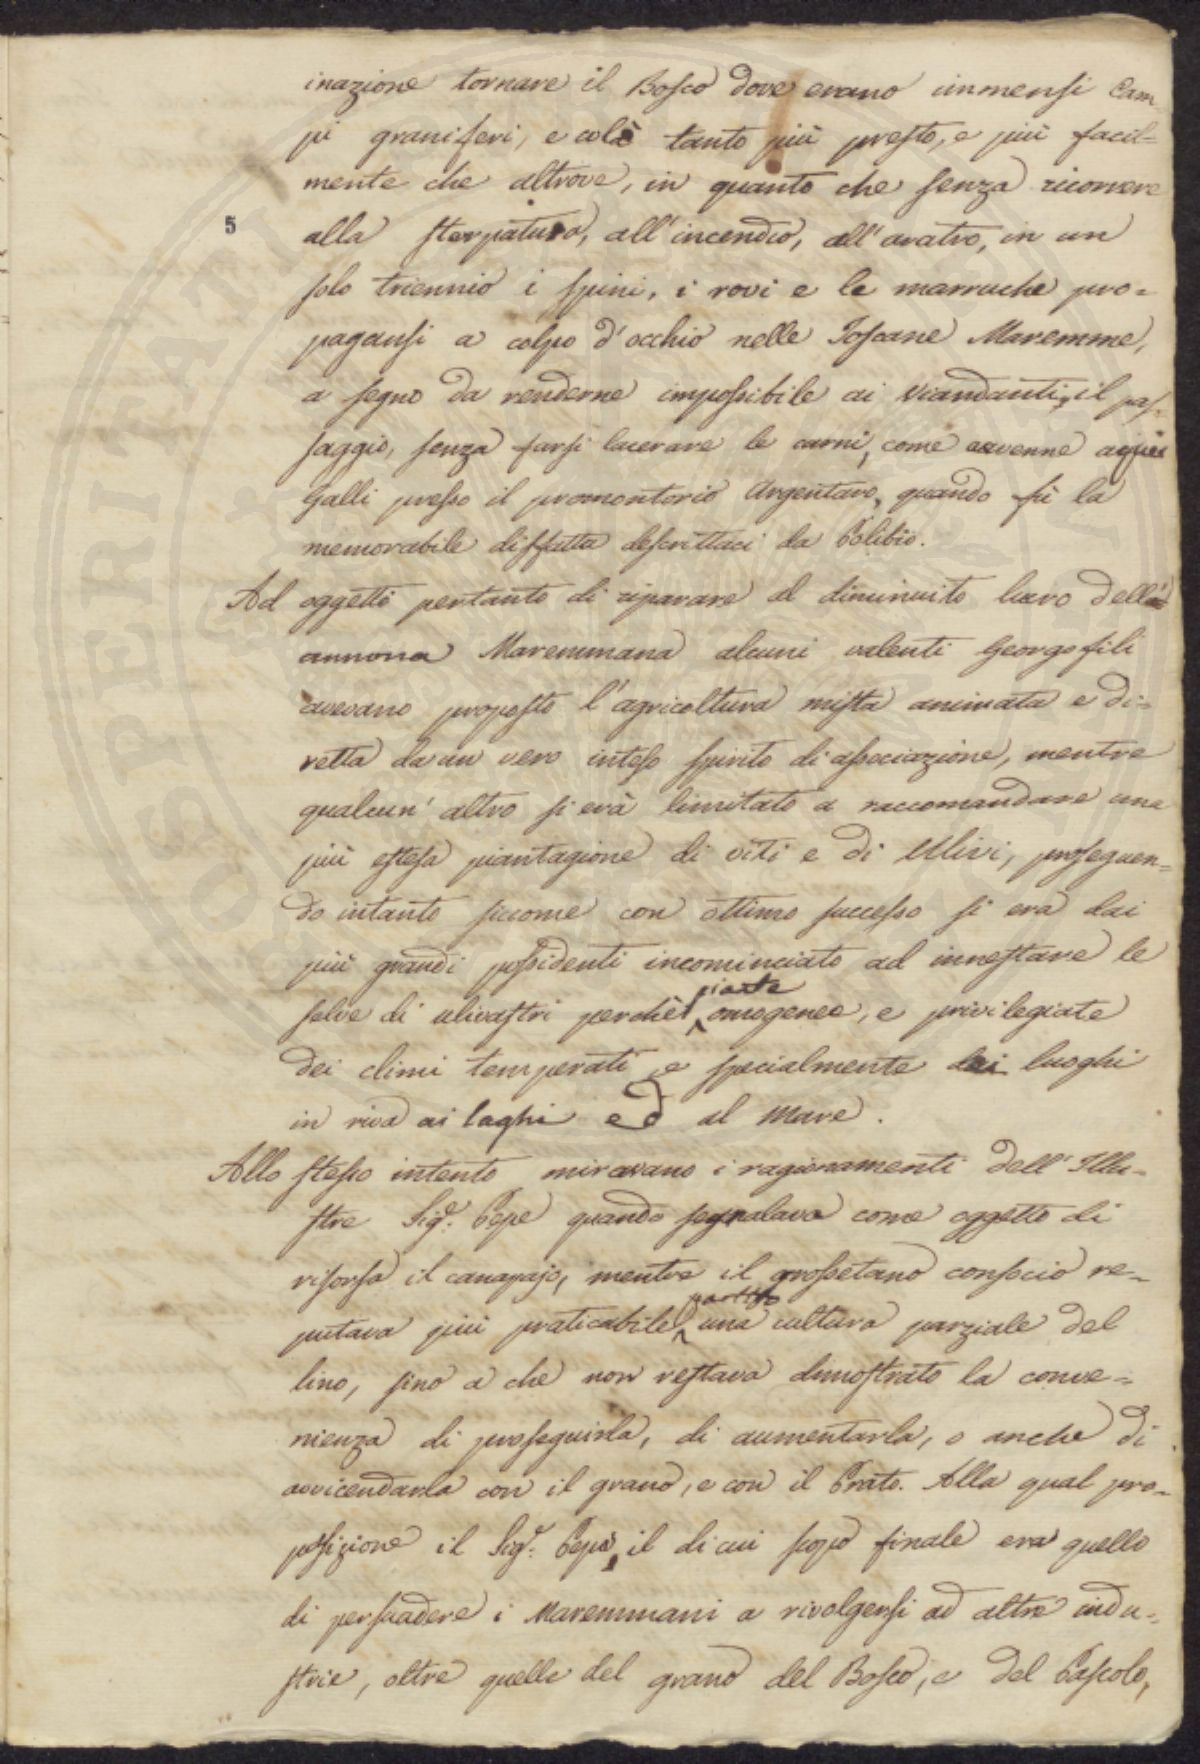 inazione tornare il Bosco dove erano immensi Cam
pi graniferi, e colà tanto più presto, e più facil=
mente che altrove, in quanto che senza ricorrere
5 alla sterpatura, all'incendio, all'aratro, in un
solo triennio i spini, i rovi e le marruche pro=
pagansi a colpo d'occhio nelle Toscane Maremme,
a segno da renderne impossibile ai Viandanti, il pas=
saggio, senza farsi lacerare le carni, come avvenne a quei
Galli presso il promontorio Argentaro, quando fù la
memorabile disfatta descrittaci da Polibio.
Ad oggetto pertanto di riparare al diminuito lucro della
annona Maremmana alcuni valenti Georgofili
avevano proposto l'agricoltura mista animata e di=
retta da un vero inteso spirito di associazione, mentre
qualcun' altro si era limitato a raccomandare una
più estesa piantagione di viti e di Ulivi, proseguen=
do intanto siccome con ottimo successo si era dai
più grandi possidenti incominciato ad innestare le
selve di ulivastri perchè piante omogenee, e privilegiate
dei climi temperati, e specialmente dei luoghi
in riva ai laghi ed al Mare.
Allo stesso intento miravano i ragionamenti dell'Illu=
stre Sigr. Pepe quando segnalava come oggetto di
risorsa il canapajo, mentre il grossetano consocio re=
putava più praticabile partito una cultura parziale del
lino, sino a che non restava dimostrato la conve=
nienza di proseguirla, di aumentarla, o anche di
avvicendarla con il grano, e con il Prato. Alla qual pro=
posizione il Sigr. Pepe, il di cui scopo finale era quello
di persuadere i Maremmani a rivolgersi ad altre indu=
strie, oltre quelle del grano del Bosco, e del Pascolo,